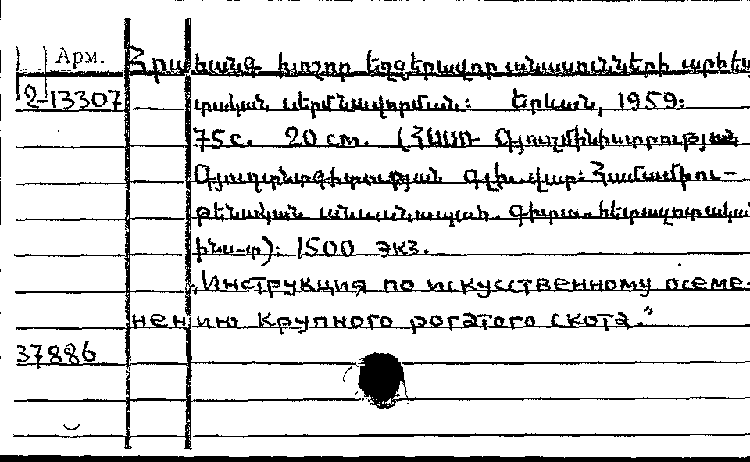 Арм. Հրահանգ խոշոր եղջերավոր անասունների արհես-
2-13307 տական սերմնավորման: Երևան, 1959:
75с. 20 cm. (ՀՍՍՌ Գյուղմինիստրության
Գյուղատնտգիտության գլխ. վար: Համամիու-
թենական անասնապահ. գիտա-հետազոտական
ինս-տ): 1500 экз.
„Инструкция по искусственному осеме-
нению крупного рогатого скота."
37886